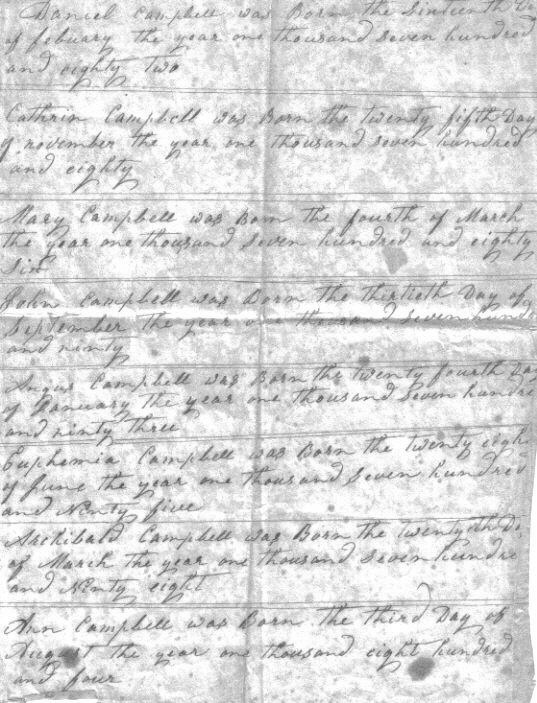 Daniel Campbell was Born the Sixteenth Da
of febuary the year one thousand seven hundred
and eighty two
Cathrin Campbell was Born the twenty fifth Day
of november the year one thousand seven hundred
and eighty
Mary Campbell was Born the fourth of March
the year one thousand seven hundred and eighty
Six
John Campbell was Born the thirtieth Day of
September the year one thousand seven hundr
and ninty
Angus Campbell was Born the twenty fourth Day
of January the year one thousand seven hundre
and ninty three
Euphemia Campbell was Born the twenty eigh
of June the year one thousand seven hundred
and Ninty five
Archibald Campbell was Born the twentyeth Da
of March the year one thousand seven hundre
and Ninty eight
Ann Campbell was Born the third Day of
August the year one thousand eight hundred
and four